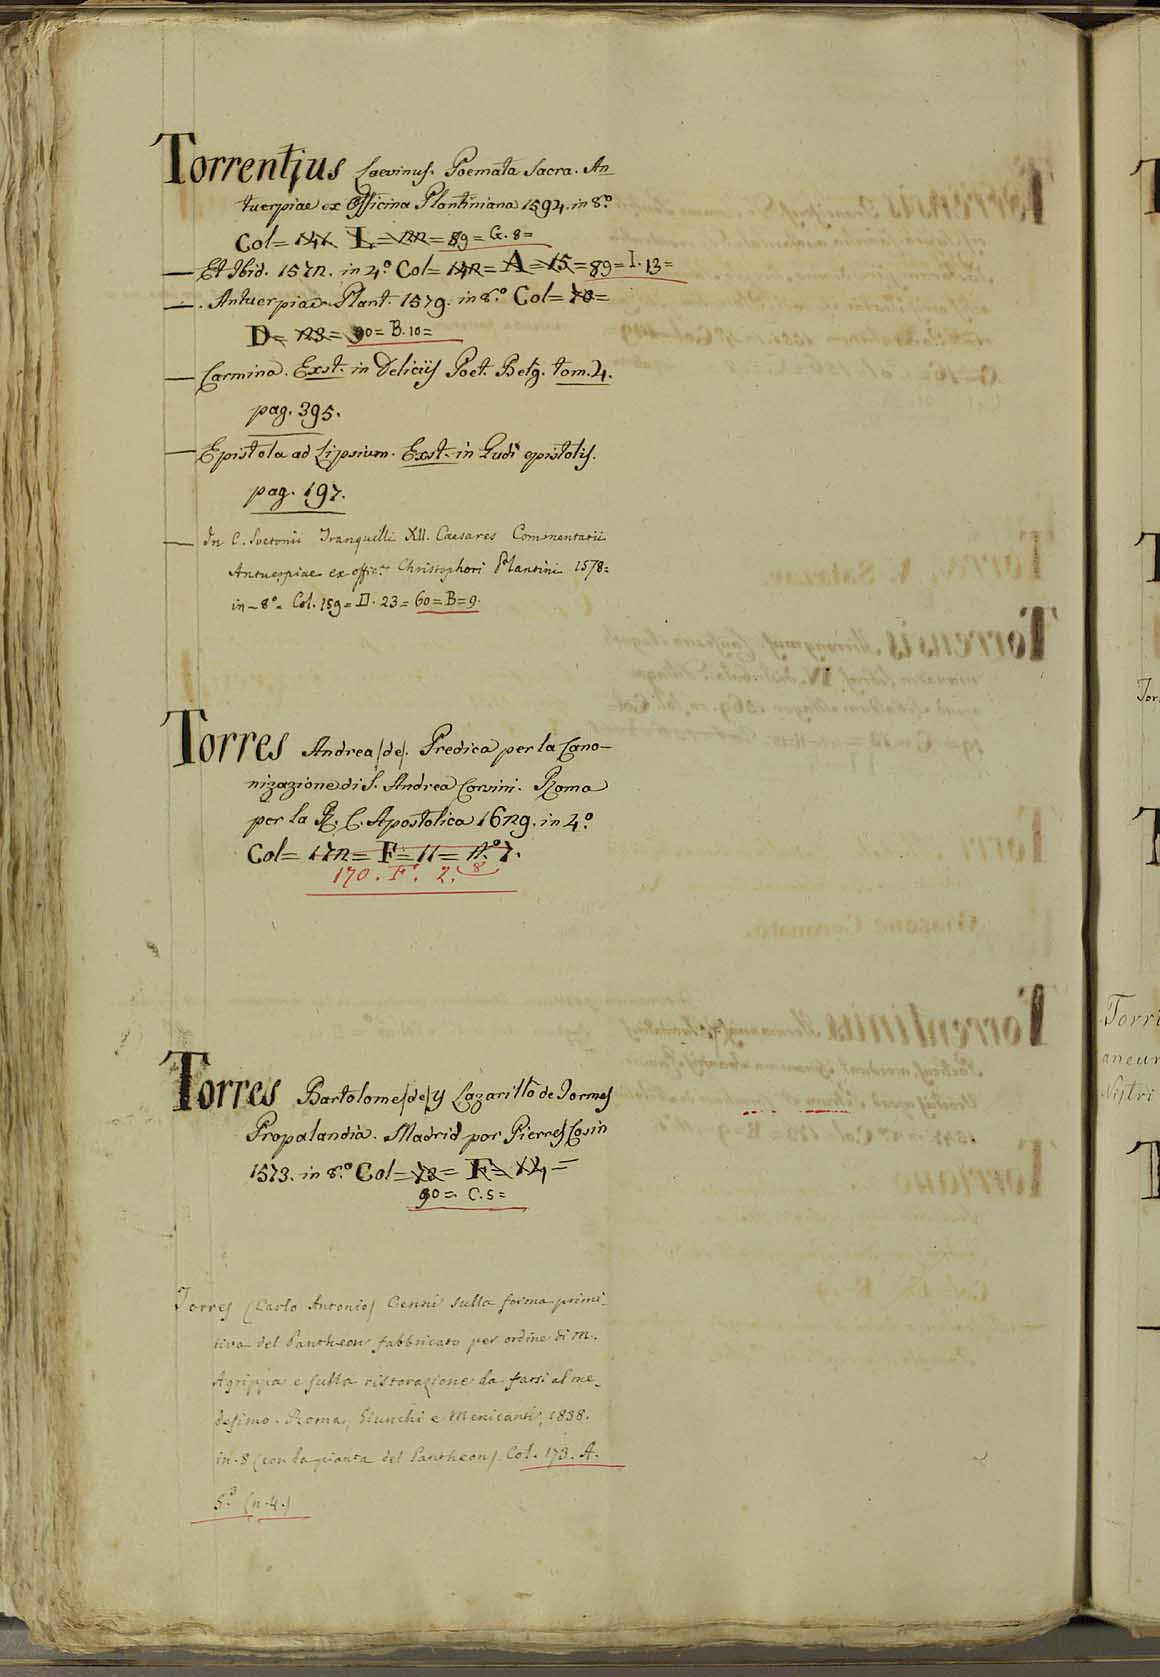 Torrentius Laevinus. Poemata Sacra. An-
tuerpiae ex Officina Plantiniana 1594. in 8.°
Col= 141 I = 122 = 89 = G. 8 =
— Et Ibid. 1572. in 4.° Col= 142 = A = 15 = 89 = I. 13 =
— . Antuerpiae Plant. 1579. in 8.° Col= 70 =
D = 123 = 90 = B. 10 =
— Carmina. Exst. in Deliciis Poet. Belg. tom. 4.
pag. 395.
— Epistola ad Lipsium. Exst. in Ludi epistolis.
pag. 197.
— In C. Svetonii Tranquilli XII. Caesares Commentarii
Antuerpiae ex offic. Christophori Plantini 1578=
in-8°= Col. 159 = D. 23 = 60 = B = 9.
Torres Andrea (de). Predica per la Cano-
nizazione di S. Andrea Corsini. Roma
per la R. C. Apostolica 1629. in 4.°
Col= 172 = F = 11 = n.° 7.
170. F. 2. 8
Torres Bartolome (de) y Lazarillo de Tormes
Propalandia. Madrid por Pierres Cosin
1573. in 8.° Col= 73 = F = 124 =
90 = C. 5 =
Torres (Carlo Antonio) Cenni sulla forma primi-
tiva del Pantheon fabbricato per ordine di M.
Agrippa e sulla ristorazione da farsi al me-
desimo. Roma, Giunchi e Menicanti, 1838.
in-8 (con la pianta del Pantheon). Col. 173. A.
5.° (n. 4.)